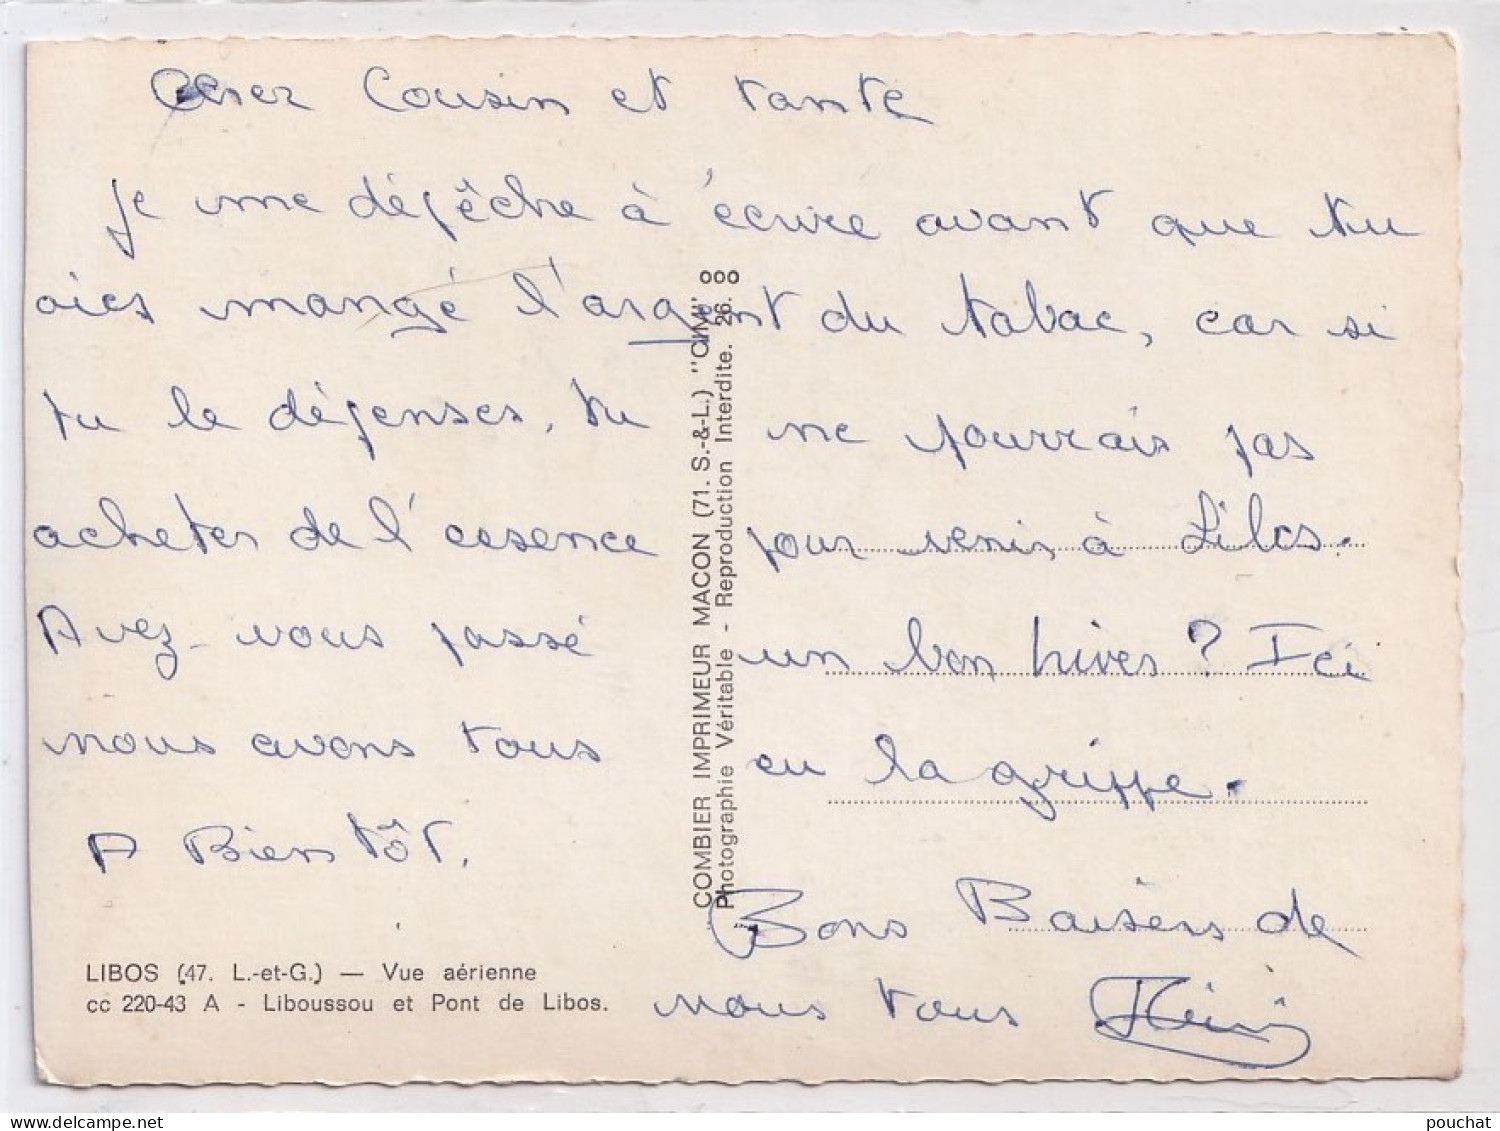 Cher Cousin et tante
je me dépêche à écrire avant que tu
aies mangé l'argent du tabac, car si
tu le dépenses, tu ne pourrais pas
acheter de l'essence pour venir à Libos.
Avez-vous passé un bon hiver ? Ici
nous avons tous eu la grippe.
A Bientôt.
Bons Baisers de
nous tous
LIBOS (47. L.-et-G.) — Vue aérienne
cc 220-43 A - Liboussou et Pont de Libos.
COMBIER IMPRIMEUR MACON (71. S.-&-L.) "CIM"
Photographie Véritable - Reproduction Interdite. 26.
pouchat